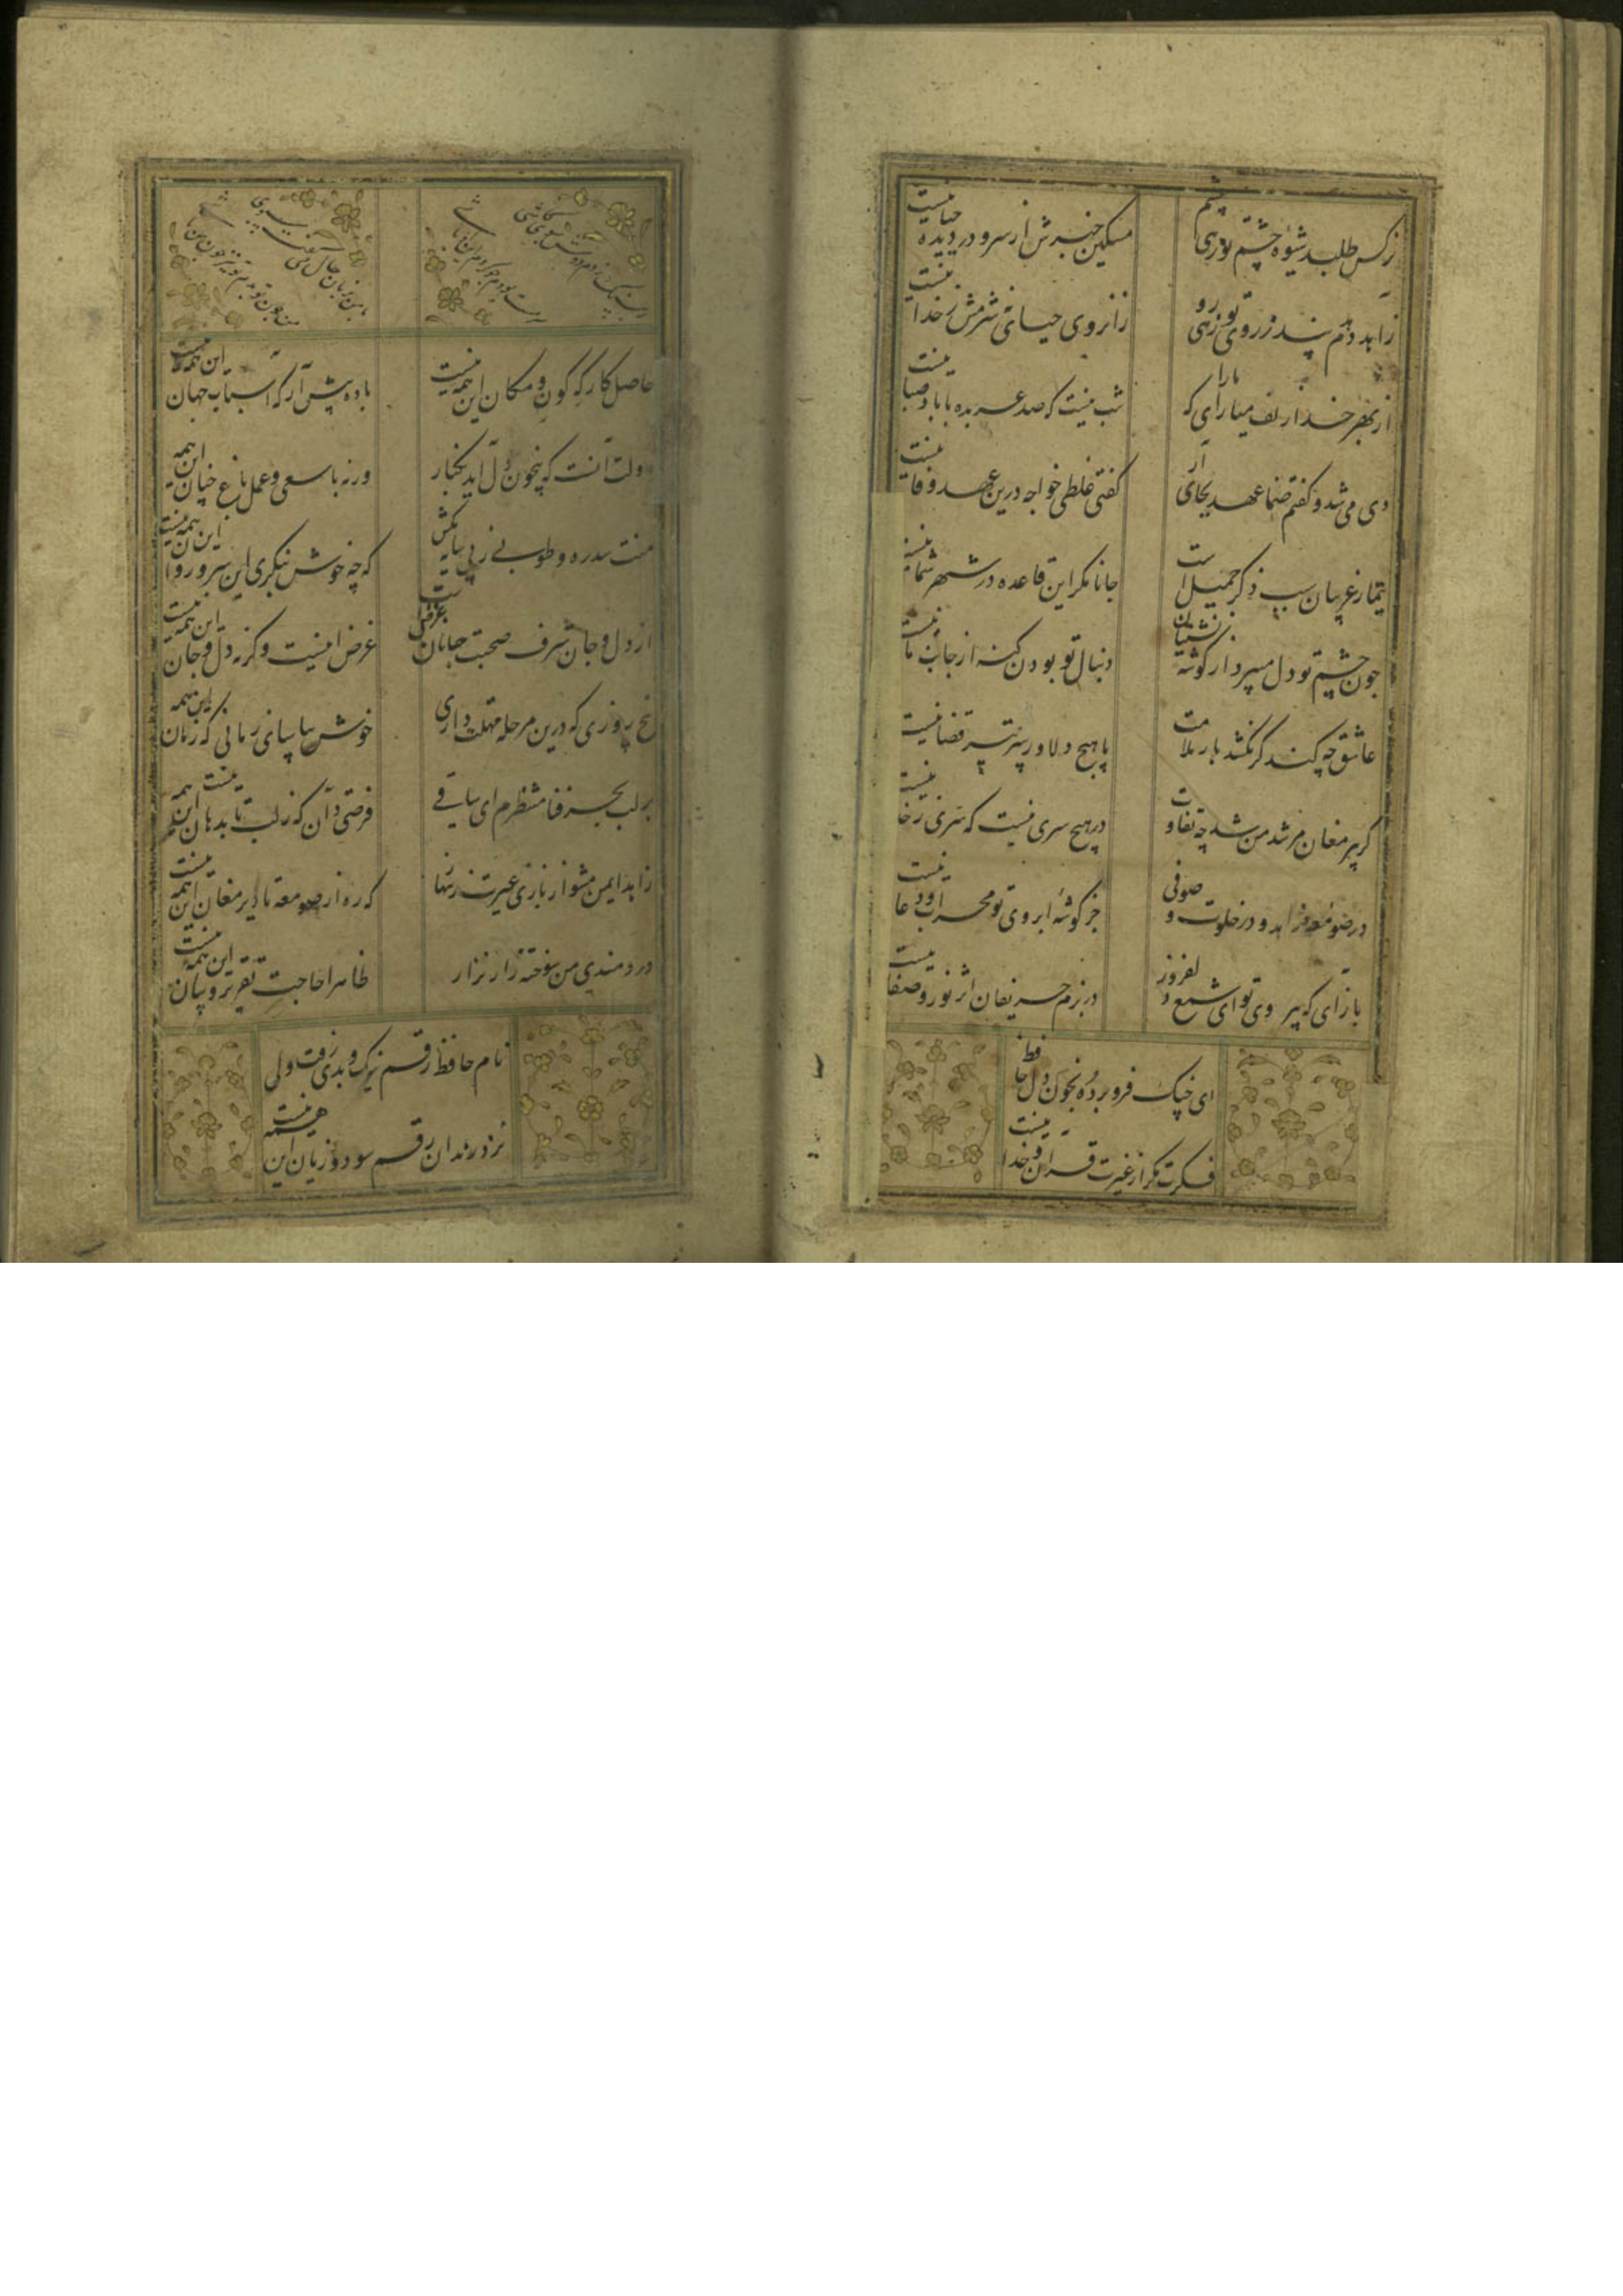 نرکس طلبد شیوه چشم تو زهی چشم
مسکین خبرش از سر و در دیده حیا نیست
زاهد دهدم پند ز روی تو زهی رو
زانروی حیائی ز شرمش ز خدا نیست
از بهر خدا زلف میارای که مارا
شب نیست که صد عربده با باد صبا نیست
دی می شد و گفتم صنما عهد بجای آر
کفتی غلطی خواجه درین عهد وفا نیست
تیمار غریبان سبب ذکر جمیل است
جانا مکر این قاعده در شهر شما نیست
چون چشم تو دل میبرد از کوشه نشینان
دنبال تو بودن کنه از جانب ما نیست
عاشق چه کند کر نکشد بار ملامت
با هیچ دلاور سپر تیر قضا نیست
کر پیر مغان مرشد من شد چه تفاوت
در هیچ سری نیست که سری ز خدا نیست
در صومعه زاهد و در خلوت صوفی
جز کوشه ابروی تو محراب دعا نیست
باز آی که بی روی تو ای شمع دلفروز
در بزم حریفان اثر نور و صفا نیست
ای چنک فرو برده بخون دل حافظ
فکرت مکر از غیرت قران و خدا نیست
حاصل کارکه کون و مکان این همه نیست
باده پیش آر که اسباب جهان این همه نیست
دولت آنست که بیخون دل آید بکنار
ورنه با سعی و عمل باغ جنان این همه
منت سدره و طوبی ز پی سایه مکش
که چو خوش بنکری ای سرو روان این همه نیست
از دل و جان شرف صحبت جانان غرض است
غرض اینست وکرنه دل و جان این همه نیست
پنج روزی که درین مرحله مهلت داری
خوش بیاسای زمانی که زمان این همه
بر لب بحر فنا منتظرم ای ساقی
فرصتی دان که ز لب تا بدهان این همه نیست
زاهد ایمن مشو از بازی غیرت زنهار
که ره از صومعه تا دیر مغان این همه نیست
دردمندی من سوخته زار نزار
ظاهرا حاجت تقریر و بیان این همه نیست
نام حافظ رقم نیک و بدی رفت ولی
نزد رندان رقم سود و زیان این همه نیست